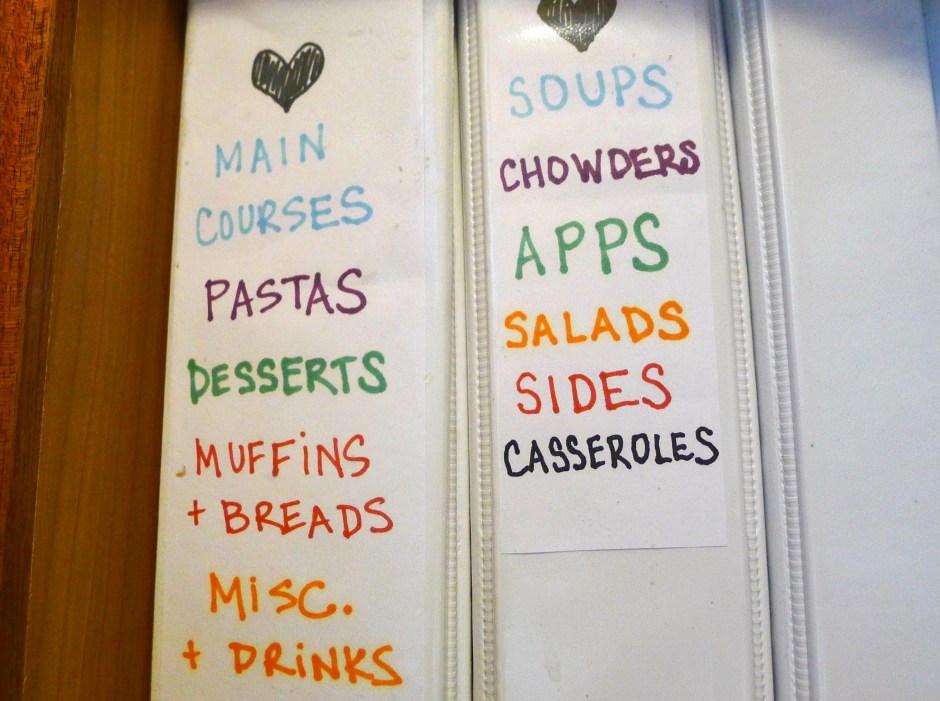 MAIN
COURSES
PASTAS
DESSERTS
MUFFiNS
+ BREADS
MiSC.
+ DRiNKS
SOUPS
CHOWDERS
APPS
SALADS
SIDES
CASSEROLES